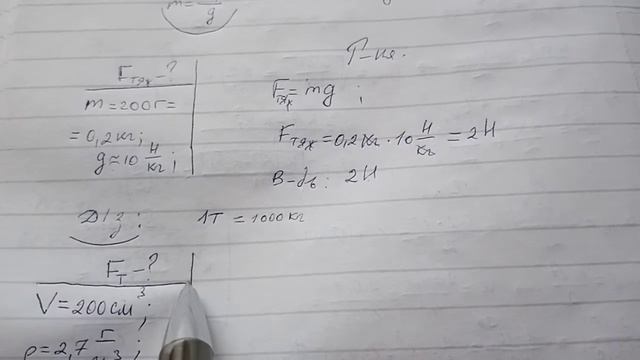 m = — g
P-ня.
Fтяж - ?
m = 200г =
= 0,2 кг;
g ≈ 10 Н/кг;
Fтяж = mg ;
Fтяж = 0,2 кг · 10 Н/кг = 2Н
В-дь: 2Н
Д/з: 1т = 1000 кг
Fт - ?
V = 200 см³;
ρ = 2,7 г/см³;